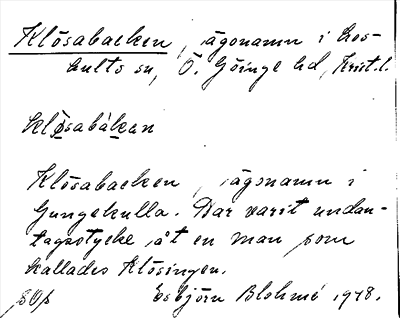 Klösabacken, ägonamn i Los-
hults sn, Ö. Göinge hd, Krist.l.
klö̱sabàkan
Klösabacken, ägonamn i
Gungekulla. Bar varit undan-
tagsstycke åt en man som
kallades Klösingen.
Esbjörn Blohmé 1948.